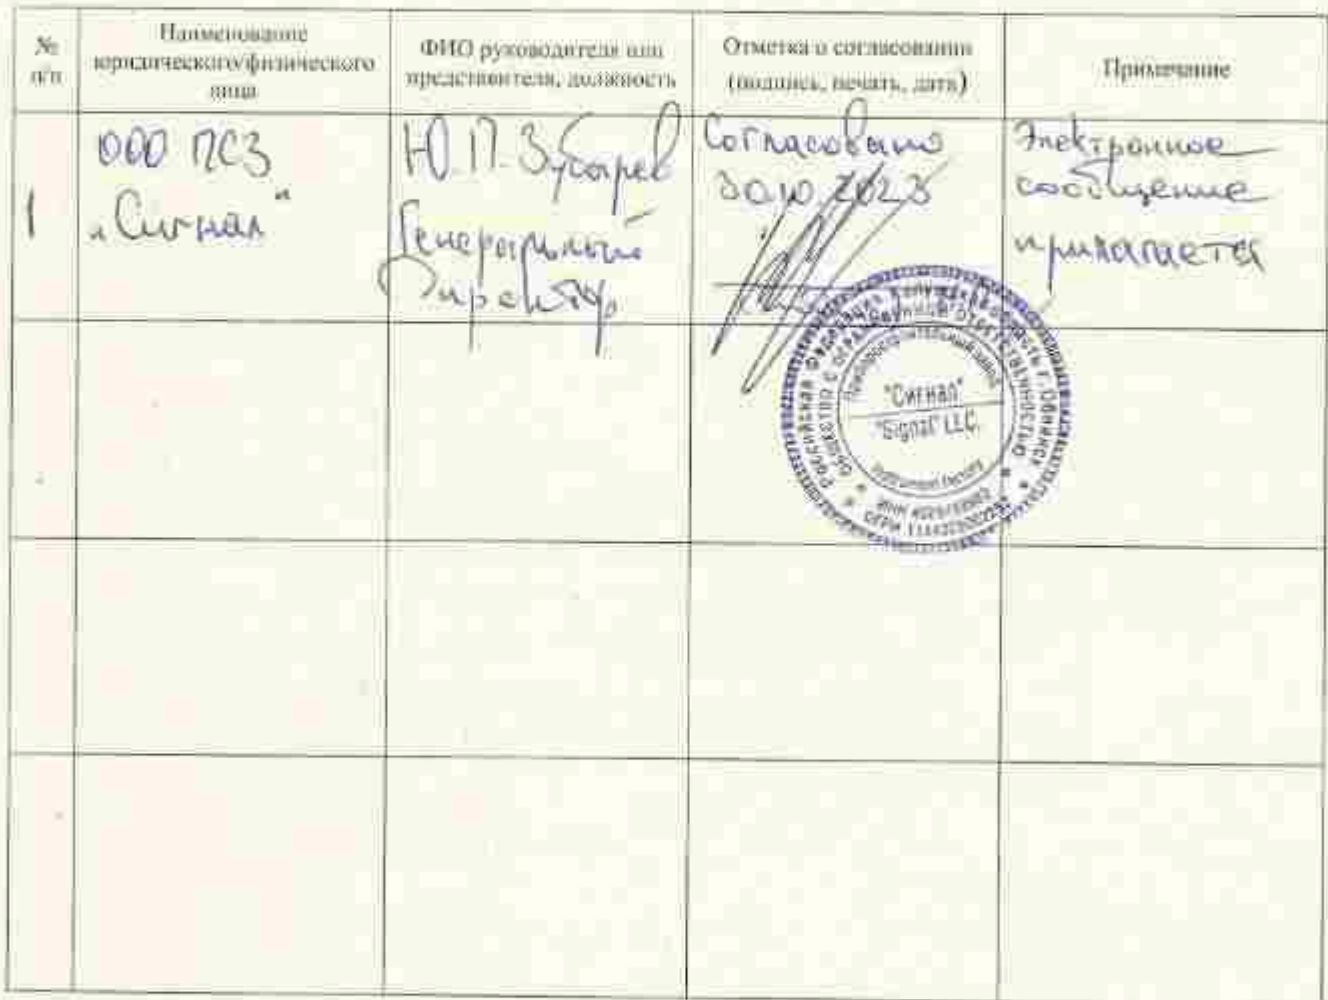 №
п/п
Наименование
юридического/физического
лица
ФИО руководителя или
представителя, должность
Отметка о согласовании
(подпись, печать, дата)
Примечание
1
ООО ПСЗ
„Сигнал"
Ю.П.
Генеральный
Директор
Согласовано
30.10.2023
Электронное
сообщение
прилагается
Российская Федерация Калужская область г. Обнинск
Общество с ограниченной ответственностью
Приборостроительный завод
"Сигнал"
"Signal" LLC.
Instrument factory
ИНН
ОГРН